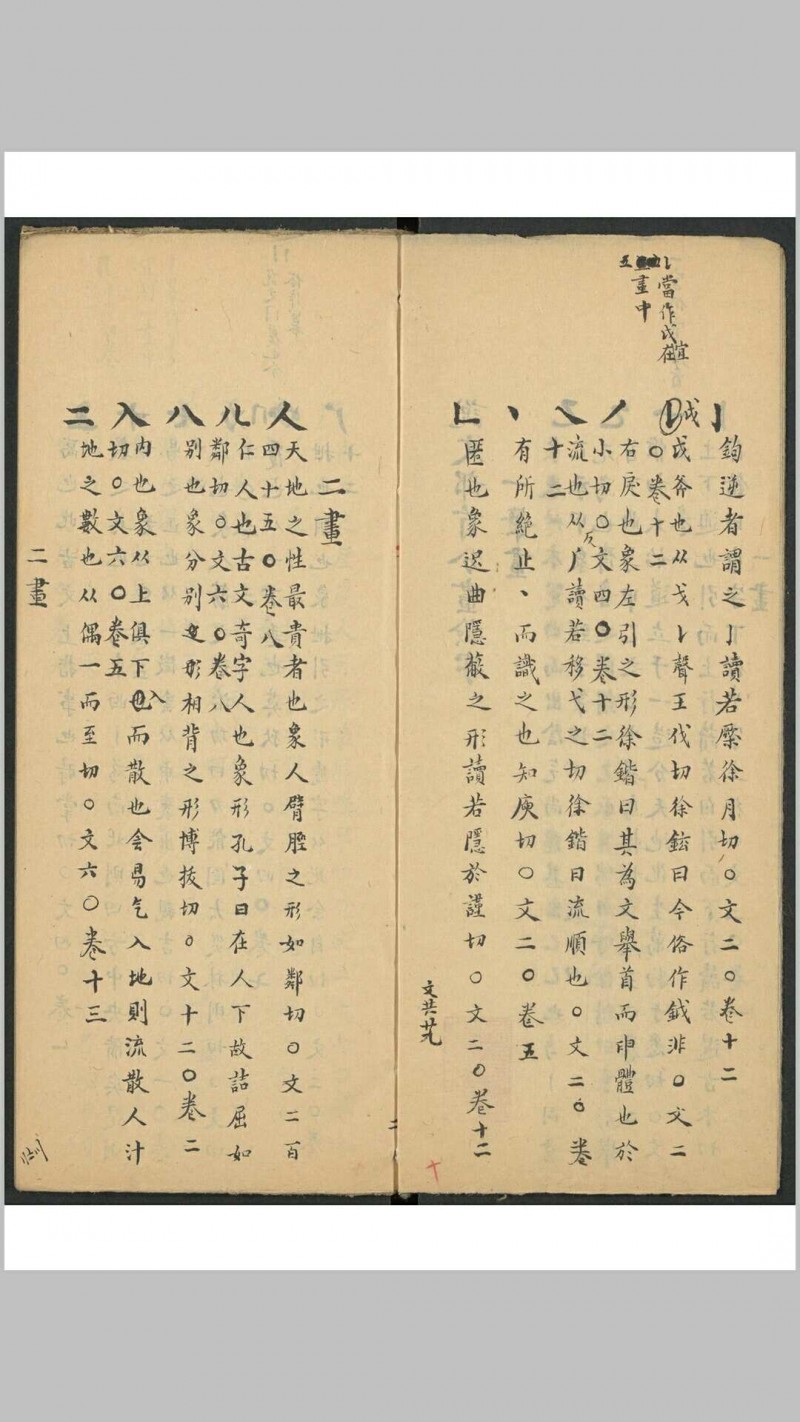 亅 鉤逆者謂之亅讀若橜徐月切○文二○卷十二
戉 戉斧也从戈𠄌聲王伐切徐鉉曰今俗作鉞非○文二
○卷十二
丿 右戾也象左引之形徐鍇曰其為文舉首而申體也於
小切○文四○卷十二
乁 流也从反𠂆讀若移弋之切徐鍇曰流順也○文二○卷
十二
丶 有所絶止丶而識之也知庾切○文二○卷五
𠃊 匿也象迟曲隱蔽之形讀若隱於謹切○文二○卷十二
𠄌當作戉宜在
五畫中
文共廿九
二畫
人 天地之性最貴者也象人臂脛之形如鄰切○文二百
四十五○卷八
儿 仁人也古文奇字人也象形孔子曰在人下故詰屈如
鄰切○文六○卷八
八 别也象分别相背之形博拔切○文十二○卷二
入 内也象从上俱下也入而散也会昜气入地則流散人汁
切○文六○卷五
二 地之數也从偶一而至切○文六○卷十三
二畫
二